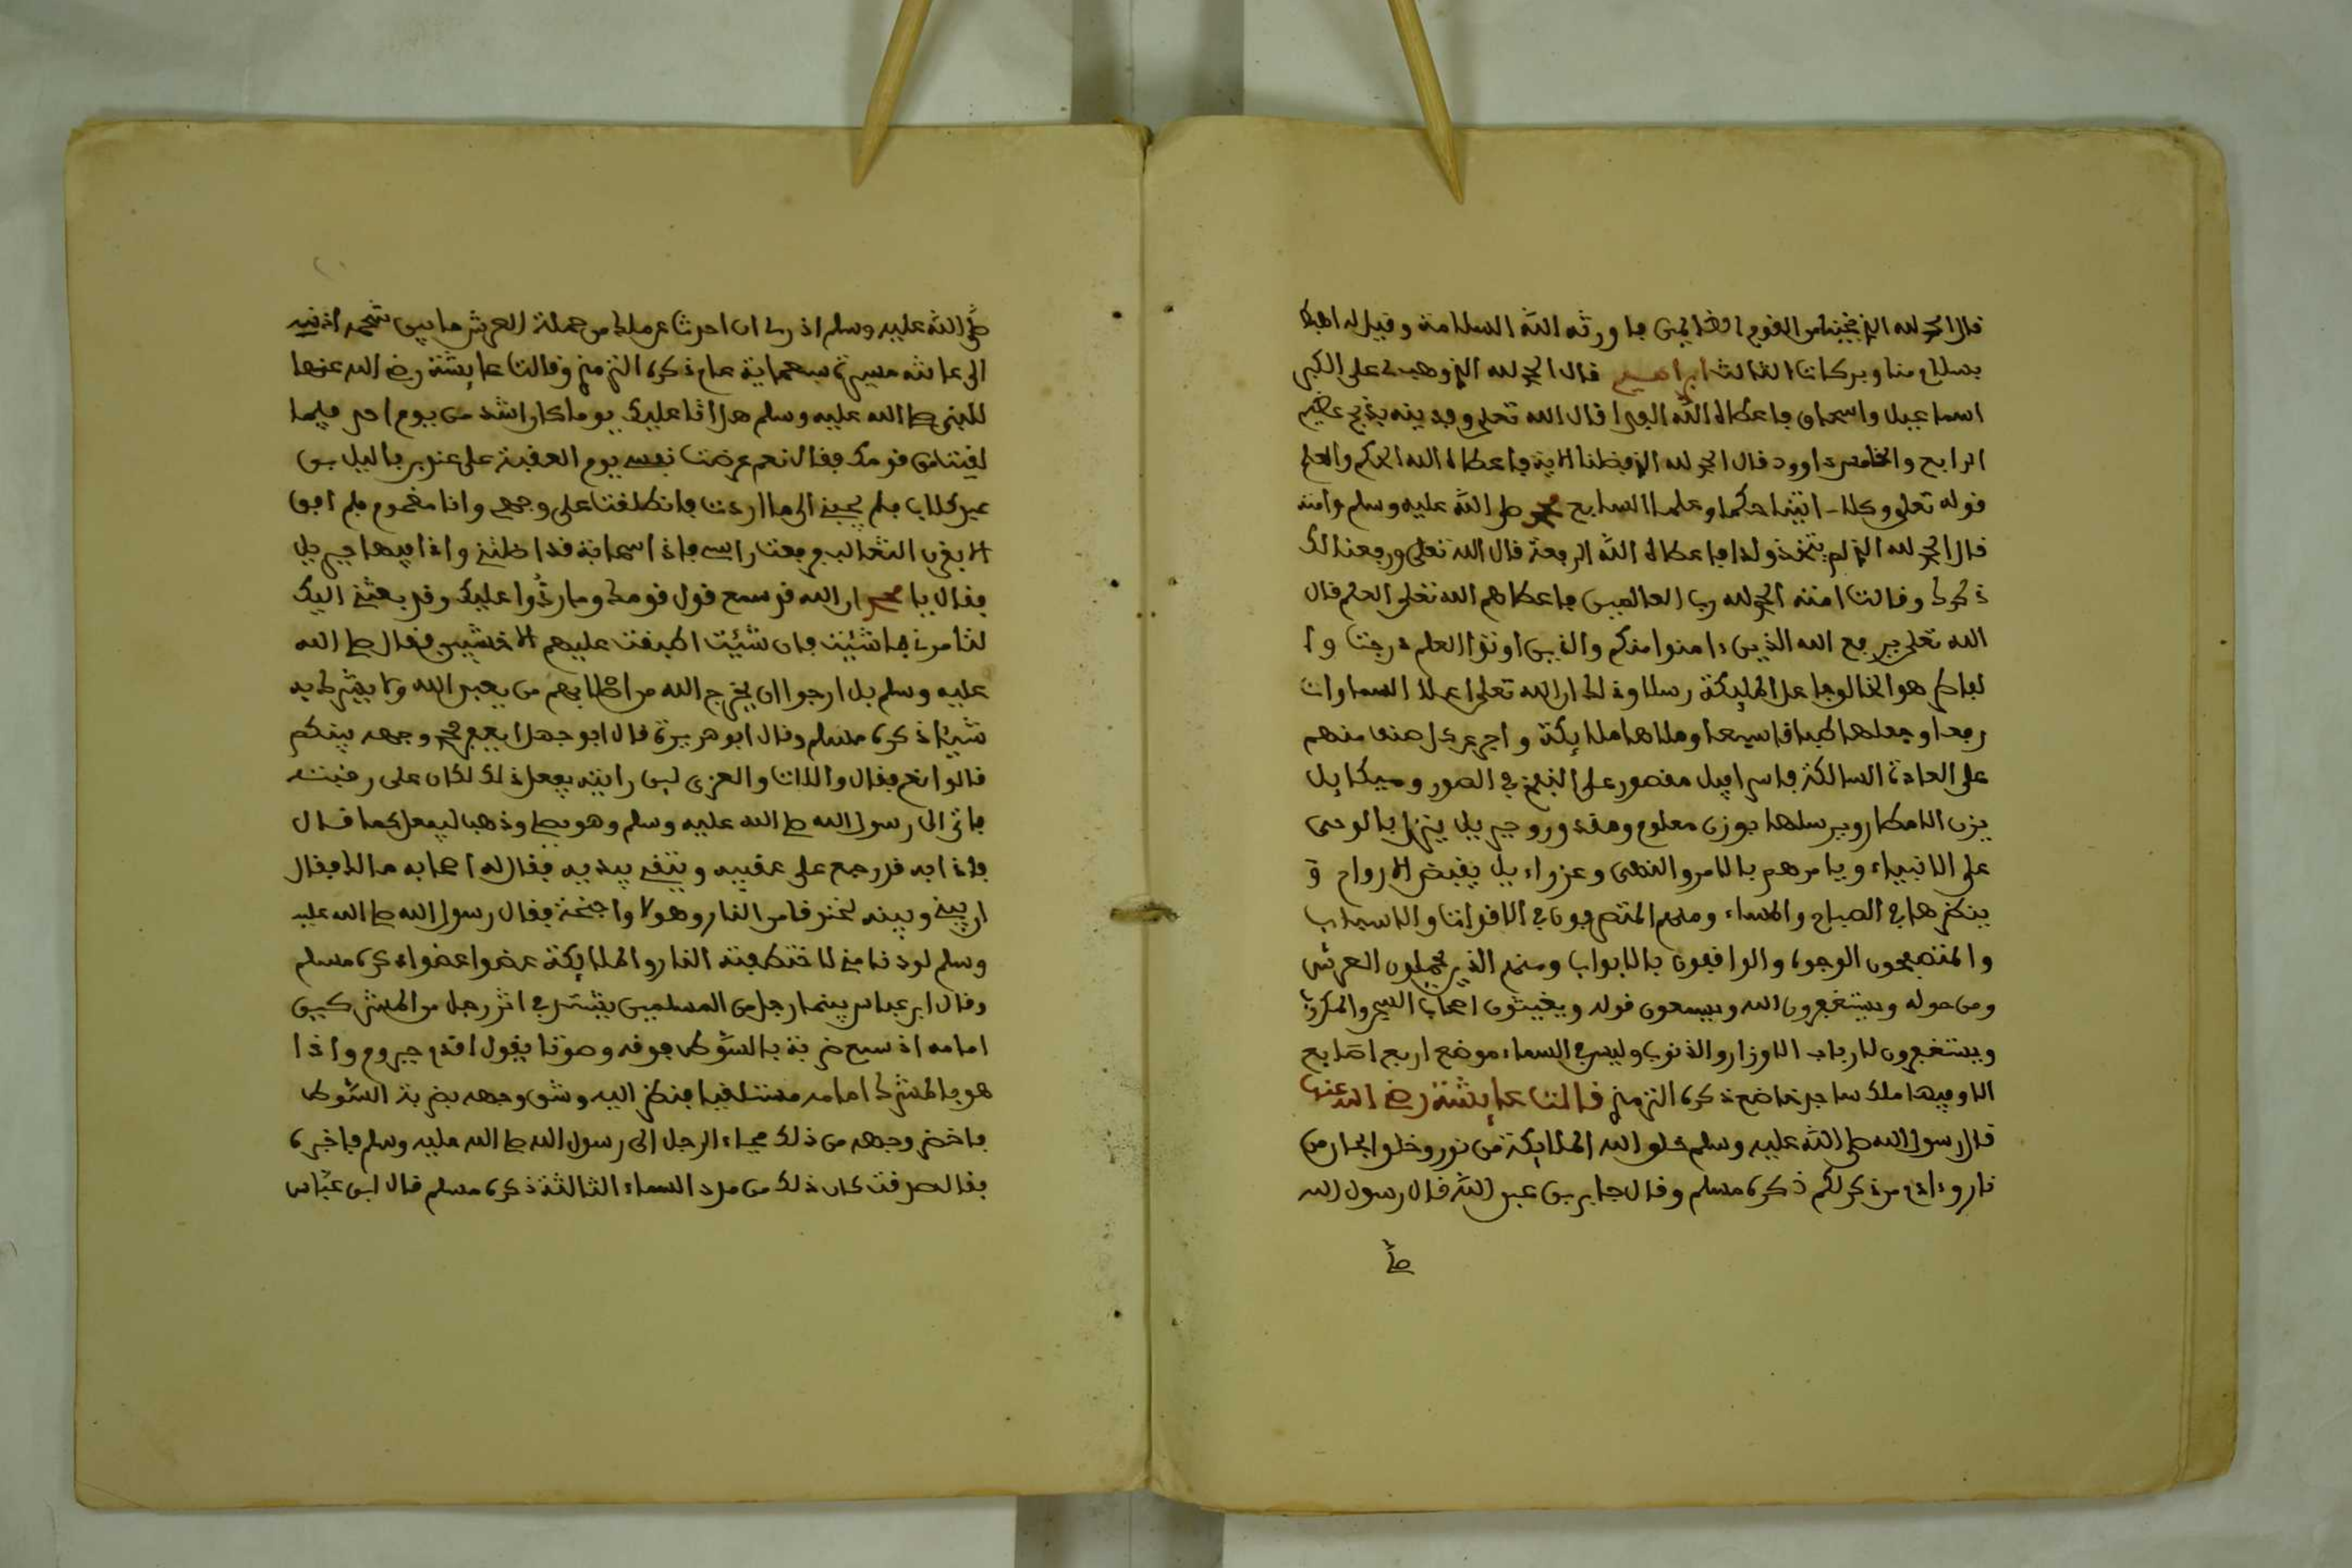 قال الحمد لله الذي نجينا من القوم الظالمين فاورثه الله السلامة وقيل له اهبط
بسلام منا وبركات الثالث ابراهيم قال الحمد لله الذي وهب لي على الكبر
اسماعيل واسحاق فاعطاه الله الفدا قال الله تعلى وفديناه بذبح عظيم
الرابع والخامس داوود قال الحمد لله الذي فضلنا الاية فاعطاه الله الحكم والعلم
قوله تعلى وكلا اتينا حكما وعلما السابع محمد صلى الله عليه وسلم وامته
قال الحمد لله الذي لم يتخذ ولدا فاعطاه الله الرفعة قال الله تعلى ورفعنا لك
ذكرك وقالت امته الحمد لله رب العالمين فاعطاهم الله تعلى العلم قال
الله تعلى يرفع الله الذين ءامنوا منكم والذين اوتوا العلم درجت وا
لفاطر هو الخالق جاعل المليكة رسلا وذلك ان الله تعلى اعلا السماوات
رفعا وجعلها طباقا سبعا وملاها ملايكة واجرى كل صنف منهم
على العادة السالكة فاسرافيل مقصور على النفخ في الصور وميكايل
يزن الامطار ويرسلها بوزن معلوم ومقدور وجبريل ينزل بالوحي
على الانبياء ويامرهم بالامر والنهى وعزراءيل يقبض الارواح و
ينظرها في الصباح والمساء ومنهم المتصرفون في الاقوات والاسباب
والمتصفحون الوجوه والواقفون بالابواب ومنهم الذين يحملون العرش
ومن حوله ويستغفرون الله ويسمعون قوله ويغيثون اصحاب السير والكرب
ويستغفرون لارباب الاوزار والذنوب وليس في السماء موضع اربع اصابع
الا وفيها ملك ساجد خاضع ذكره الترمذي قالت عايشة رضي الله عنها
قال رسول الله صلى الله عليه وسلم خلق الله الملايكة من نور وخلق الجان من
نار وءادم من ذكر لكم ذكره مسلم وقال جابر بن عبد الله قال رسول الله
صلى
صلى الله عليه وسلم اذن لي ان احدث عن ملك من حملة العرش ما بين شحمة اذنيه
الى عاتقه مسيرة سبعماية عام ذكره الترمذي وقالت عايشة رضي الله عنها
للنبي صلى الله عليه وسلم هل اتا عليك يوما كان اشد من يوم احد فيما
لقيت من قومك فقال نعم عرضت نفسي يوم العقبة على عبد ياليل بن
عبد كلاب فلم يجبني الى ما اردت فانطلقت على وجهي وانا مغموم فلم افق
الا بقرن الثعالب فرفعت راسي فاذا سحابة قد اظلتني واذا فيها جبريل
فقال يا محمد ان الله قد سمع قول قومك وما ردوا عليك وقد بعثني اليك
لتامرني بما شئت فان شئت اطبقت عليهم الاخشبين فقال صلى الله
عليه وسلم بل ارجوا ان يخرج الله من اصلابهم من يعبد الله ولا يشرك به
شيئا ذكره مسلم وقال ابو هريرة قال ابو جهل ايعفر محمد وجهه بينكم
قالوا نعم فقال واللات والعزى لين رايته يفعل ذلك لاطان على رقبته
فاتى الى رسول الله صلى الله عليه وسلم وهو يصلي وذهب ليفعل كما قال
فاذا به قد رجع على عقبيه ويتقي بيديه فقال له اصحابه مالك فقال
ان بيني وبينه لخندقا من النار وهولا واجنحة فقال رسول الله صلى الله عليه
وسلم لو دنا مني لاختطفته النار والملايكة عضوا عضوا ذكره مسلم
وقال ابن عباس بينما رجل من المسلمين يشتد في اثر رجل من المشركين
امامه اذ سمع ضربة بالسوط فوقه وصوتا يقول اقدم حيزوم واذا
هو بالمشرك امامه مستلقيا فنظر اليه وشق وجهه بضربة السوط
فاخضر وجهه من ذلك فجاء الرجل الى رسول الله صلى الله عليه وسلم فاخبره
فقال صدقت كان ذلك من مدد السماء الثالثة ذكره مسلم قال ابن عباس